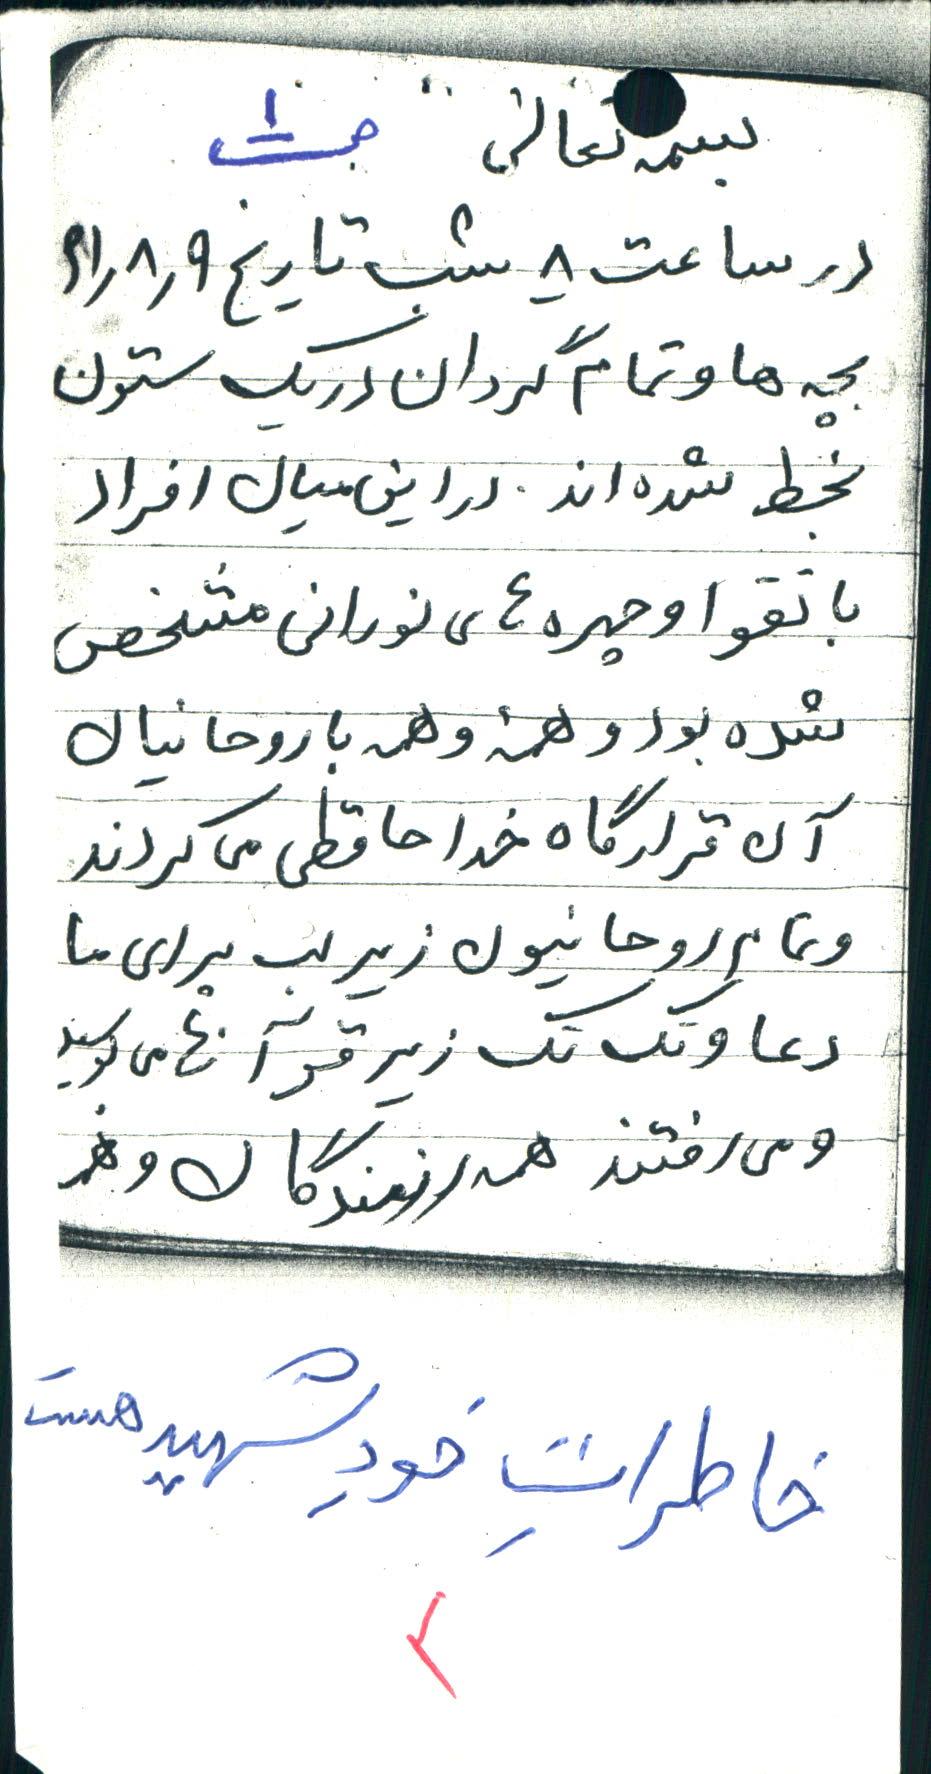 بسمه تعالی
در ساعت ۸ شب تاریخ ۶۱٫۸٫۹
بچه ها و تمام گردان در یک ستون
بخط شده اند. در این میان افراد
با تقوا و چهره های نورانی مشخص
شده بود و همه و همه با روحانیان
آن قرارگاه خداحافظی می کردند
و تمام روحانیون زیر لب برای ما
دعا و تک تک زیر قرآن ها می
و می رفتند همه رزمندگان و همه
خاطراتِ خودِ شهید هست
۲